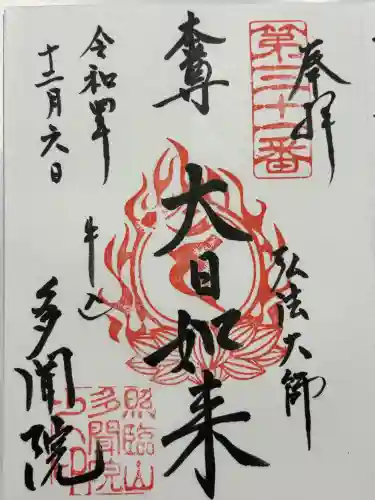 奉拝
第三十一番
弘法大師
本尊
大日如来
令和四年
十二月六日
牛込
多聞院
照臨山
多聞院